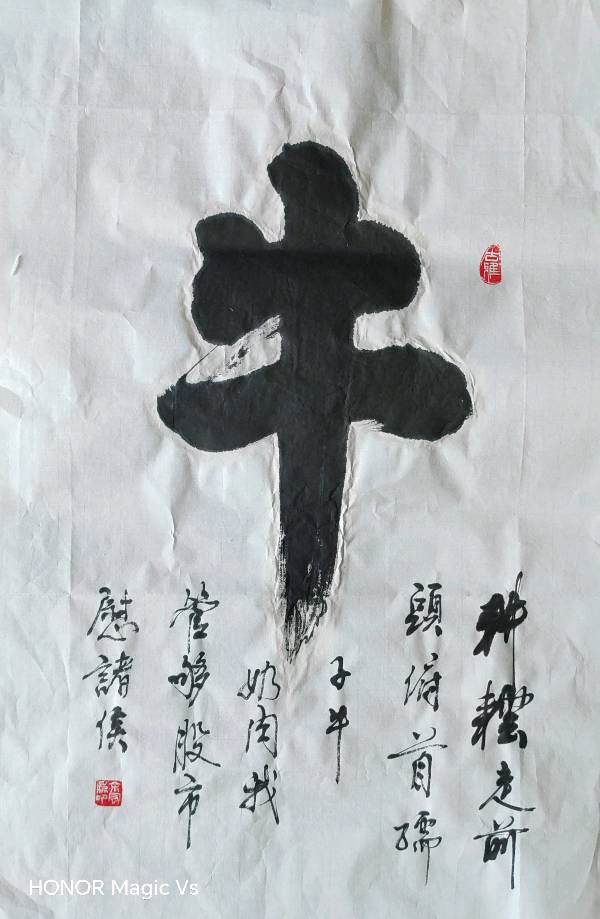 牛
耕耘走前
頭俯首孺
子牛
奶肉我
管够股市
慰諸侯
HONOR Magic Vs